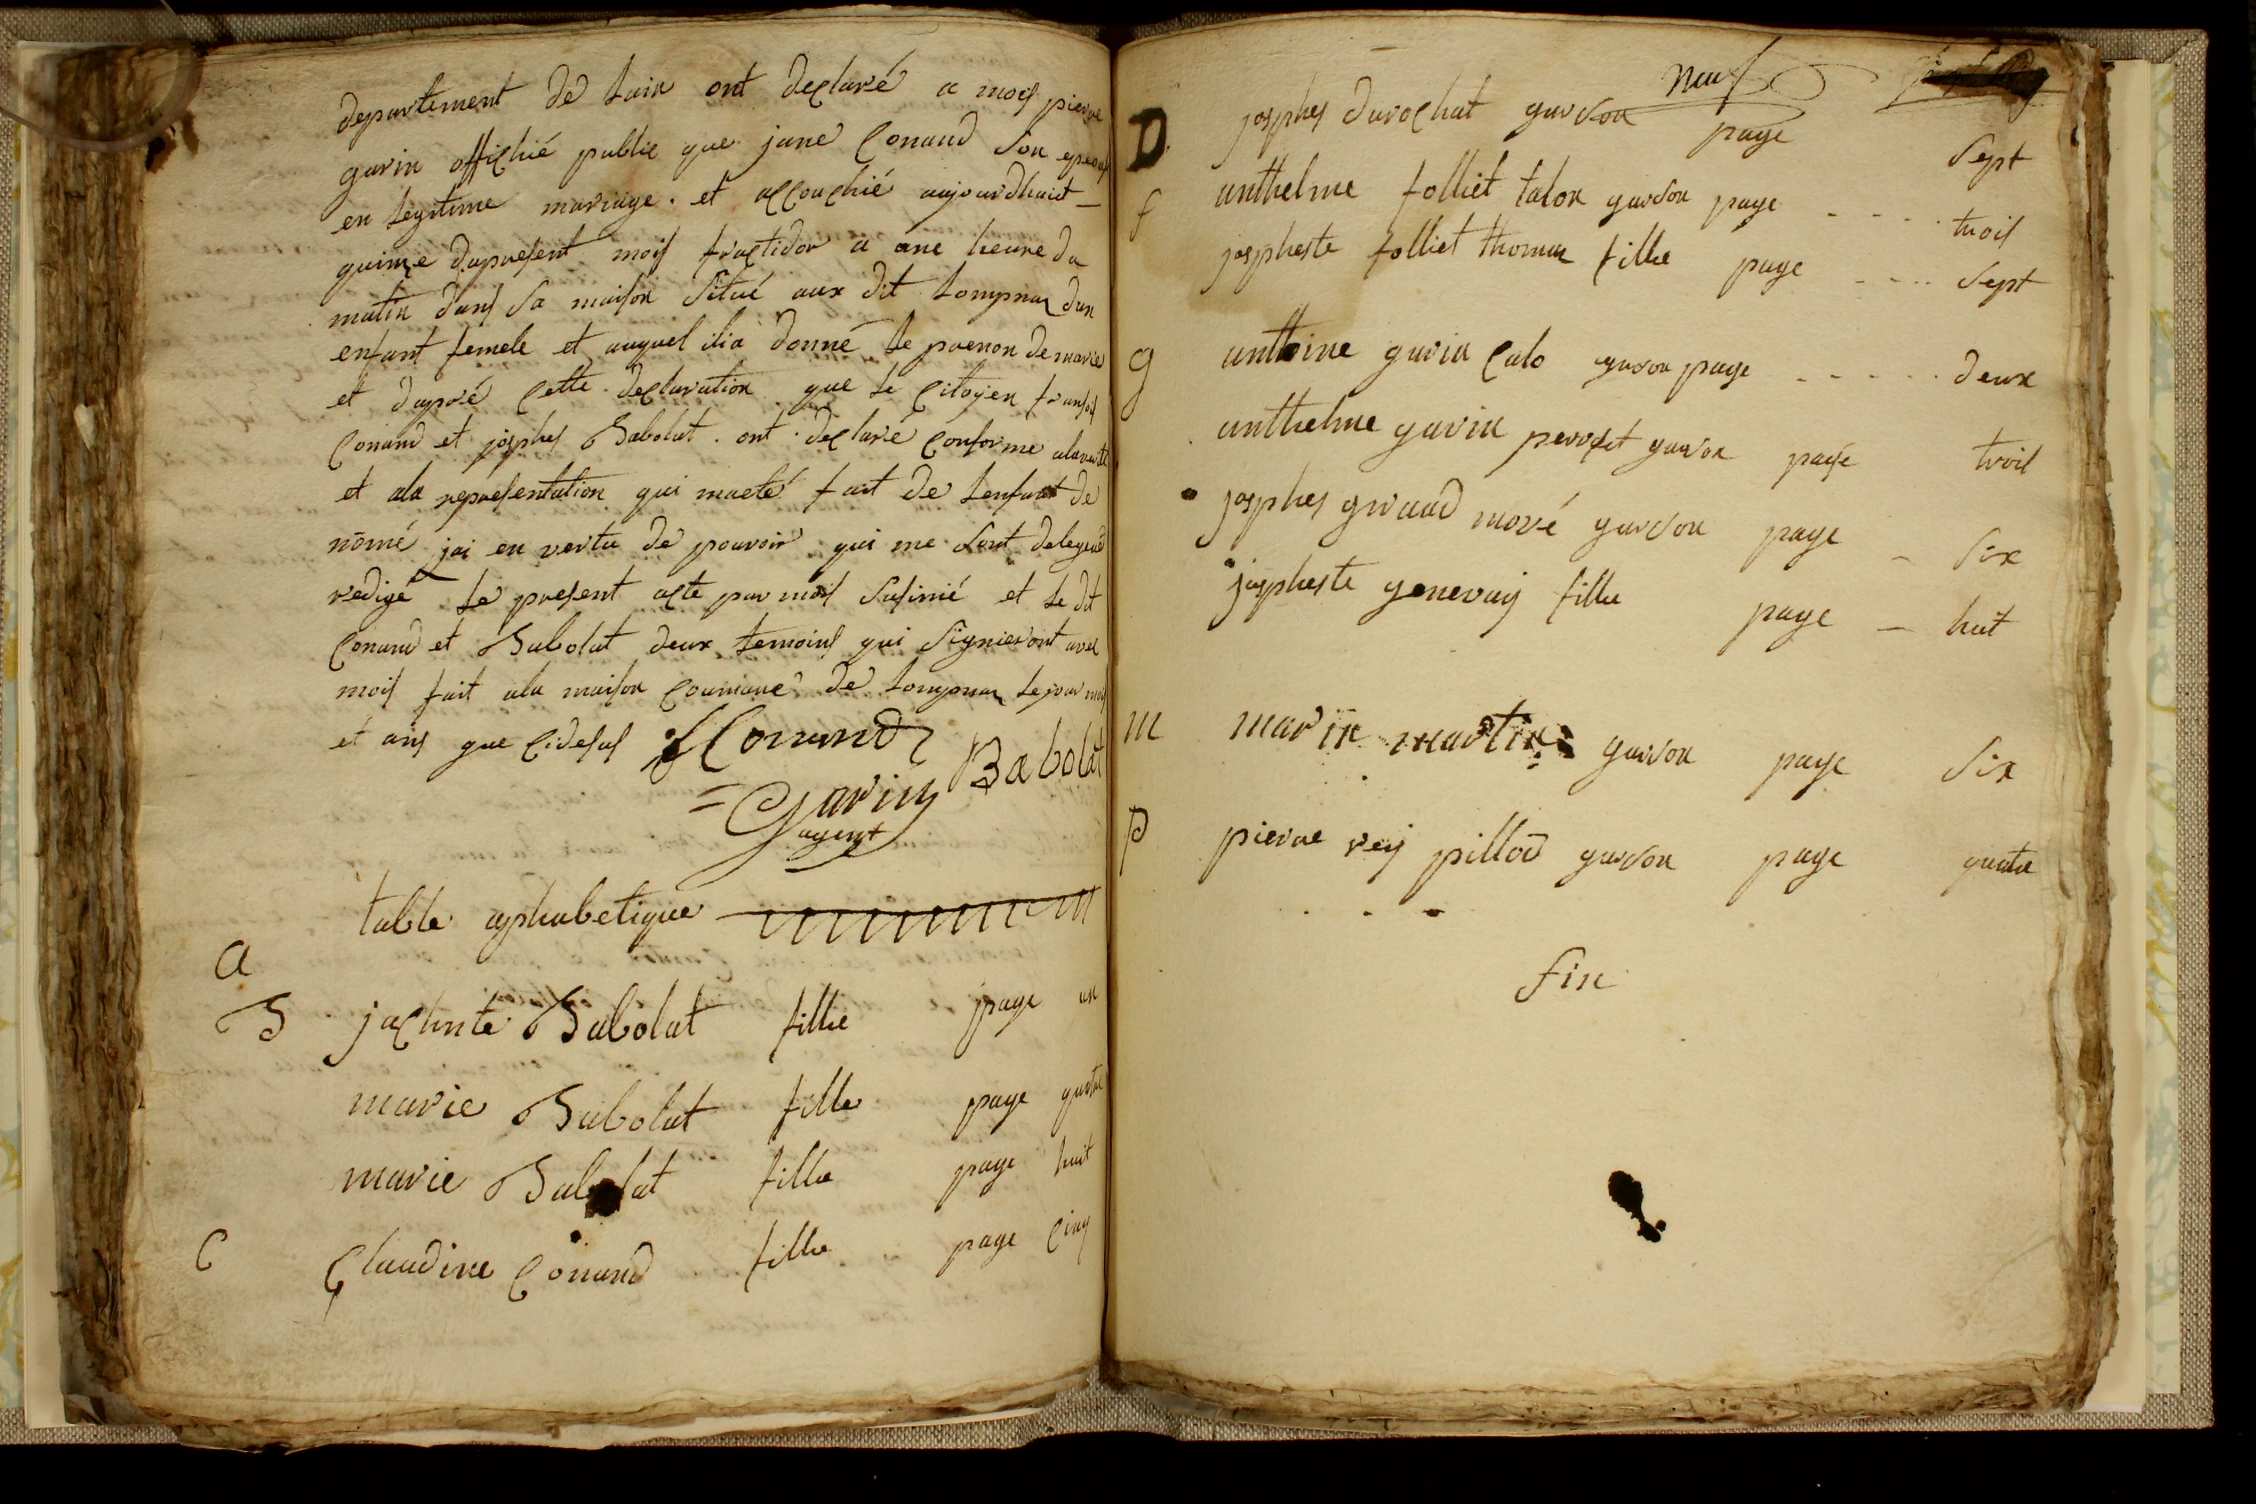 departement de Lain ont declaré a mois pierre
garin offichié public que jane Conand son epouse
en legitime mariage . et accouchié aujourdhuit
quinze dupresent mois fructidor a une heure du
matin dans sa maison situé aux dit Lompnas dun
enfant femele et auquel ilia donné le prenon de marie
et dapré cette declaration que le citoyen fransois
Conand et josphes Babolat . ont declaré conforme alaverité
et ala representation qui maeté fait de lenfant de
nōmé jai en vertu de pouvoir qui me sont delegené
redigé le present acte par mois susinié et le dit
Conand et Babolat deux temoins qui signieront avec
mois fait ala maison coumune de Lompnas le jour mois
et ans que cidesus Conand
Babolat
Garin
agent
table aphabetique
a
B jacinte Babolat fillie page un
marie Babolat fille page quatre
marie Babolat fille page huit
C Claudine Conand fille page cinq
neuf
D josphes durochat garson page sept
f anthelme folliet talon garson page - - - - trois
jospheste folliet thomas fillie page - - - - sept
g anthoine garin calo garson page - - - - - - deux
anthelme garin perroset garson page trois
josphes giraud moré garson page - six
jospheste genevay fillie page - huit
m mariin martin garson page six
p pierre rey pillod garson page quatre
fin